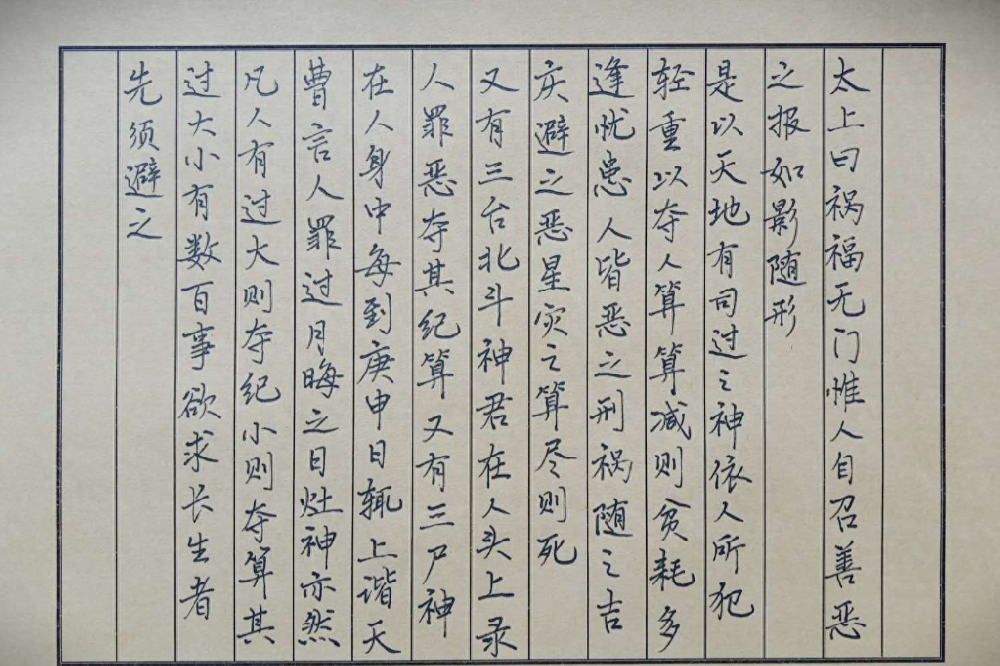 太上曰祸福无门惟人自召善恶
之报如影随形
是以天地有司过之神依人所犯
轻重以夺人算算减则贫耗多
逢忧患人皆恶之刑祸随之吉
庆避之恶星灾之算尽则死
又有三台北斗神君在人头上录
人罪恶夺其纪算又有三尸神
在人身中每到庚申日辄上谐天
曹言人罪过月晦之日灶神亦然
凡人有过大则夺纪小则夺算其
过大小有数百事欲求长生者
先须避之